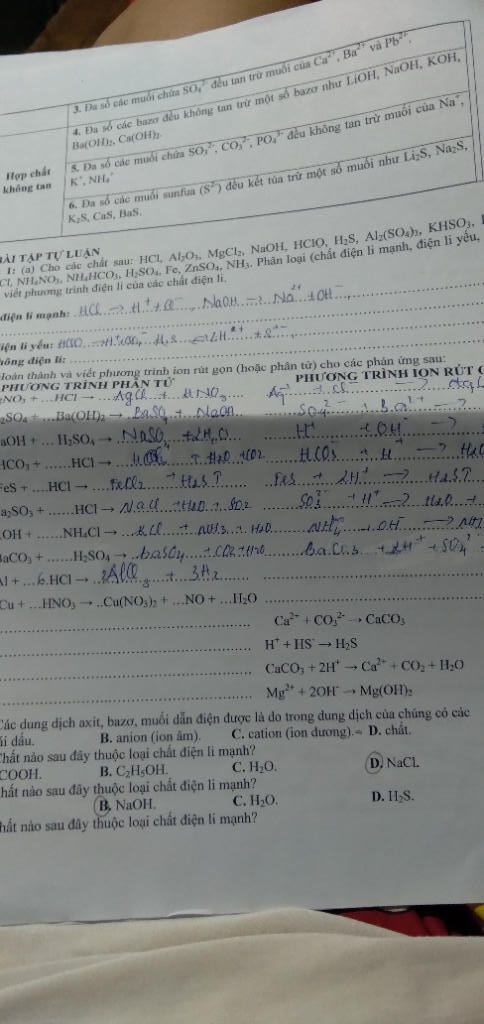 3. Đa số các muối chứa SO₄²⁻ đều tan trừ muối của Ca²⁺, Ba²⁺ và Pb²⁺.
4. Đa số các bazơ đều không tan trừ một số bazơ như LiOH, NaOH, KOH,
Ba(OH)₂, Ca(OH)₂.
Hợp chất không tan
5. Đa số các muối chứa SO₃²⁻, CO₃²⁻, PO₄³⁻ đều không tan trừ muối của Na⁺,
K⁺, NH₄⁺
6. Đa số các muối sunfua (S²⁻) đều kết tủa trừ một số muối như Li₂S, Na₂S,
K₂S, CaS, BaS.
BÀI TẬP TỰ LUẬN
1: (a) Cho các chất sau: HCl, Al₂O₃, MgCl₂, NaOH, HClO, H₂S, Al₂(SO₄)₃, KHSO₃,
Cl, NH₄NO₃, NH₄HCO₃, H₂SO₄, Fe, ZnSO₄, NH₃. Phân loại (chất điện li mạnh, điện li yếu,
viết phương trình điện li của các chất điện li.
điện li mạnh: HCl → H⁺ + Cl⁻, NaOH → Na⁺ + OH⁻
điện li yếu: H₂S ⇌ 2H⁺ + S²⁻
không điện li:
Hoàn thành và viết phương trình ion rút gọn (hoặc phân tử) cho các phản ứng sau:
PHƯƠNG TRÌNH PHÂN TỬ PHƯƠNG TRÌNH ION RÚT G
gNO₃ + ...HCl → AgCl + HNO₃ Ag⁺ + Cl⁻ → AgCl
₂SO₄ + ...Ba(OH)₂ → BaSO₄ + NaOH SO₄²⁻ + Ba²⁺ →
aOH + ... H₂SO₄ → NaSO₄ + 2H₂O H⁺ + OH⁻ →
HCO₃ + ......HCl → + H₂O + CO₂ HCO₃⁻ + H⁺ → H₂O
FeS + ....HCl → FeCl₂ + H₂S↑ FeS + 2H⁺ → H₂S↑
a₂SO₃ + ......HCl → NaCl + H₂O + SO₂ SO₃²⁻ + H⁺ → H₂O +
OH + ......NH₄Cl → KCl + NH₃ + H₂O NH₄⁺ + OH⁻ → NH₃
BaCO₃ + ......H₂SO₄ → baSO₄ + CO₂ + H₂O BaCO₃ + 2H⁺ + SO₄²⁻
Al + ...6.HCl → 2AlCl₃ + 3H₂
Cu + ...HNO₃ → ..Cu(NO₃)₂ + ...NO + ...H₂O
Ca²⁺ + CO₃²⁻ → CaCO₃
H⁺ + HS⁻ → H₂S
CaCO₃ + 2H⁺ → Ca²⁺ + CO₂ + H₂O
Mg²⁺ + 2OH⁻ → Mg(OH)₂
Các dung dịch axit, bazơ, muối dẫn điện được là do trong dung dịch của chúng có các
ái dấu. B. anion (ion âm). C. cation (ion dương). D. chất.
Chất nào sau đây thuộc loại chất điện li mạnh?
COOH. B. C₂H₅OH. C. H₂O. D. NaCl.
hất nào sau đây thuộc loại chất điện li mạnh?
B. NaOH. C. H₂O. D. H₂S.
hất nào sau đây thuộc loại chất điện li mạnh?